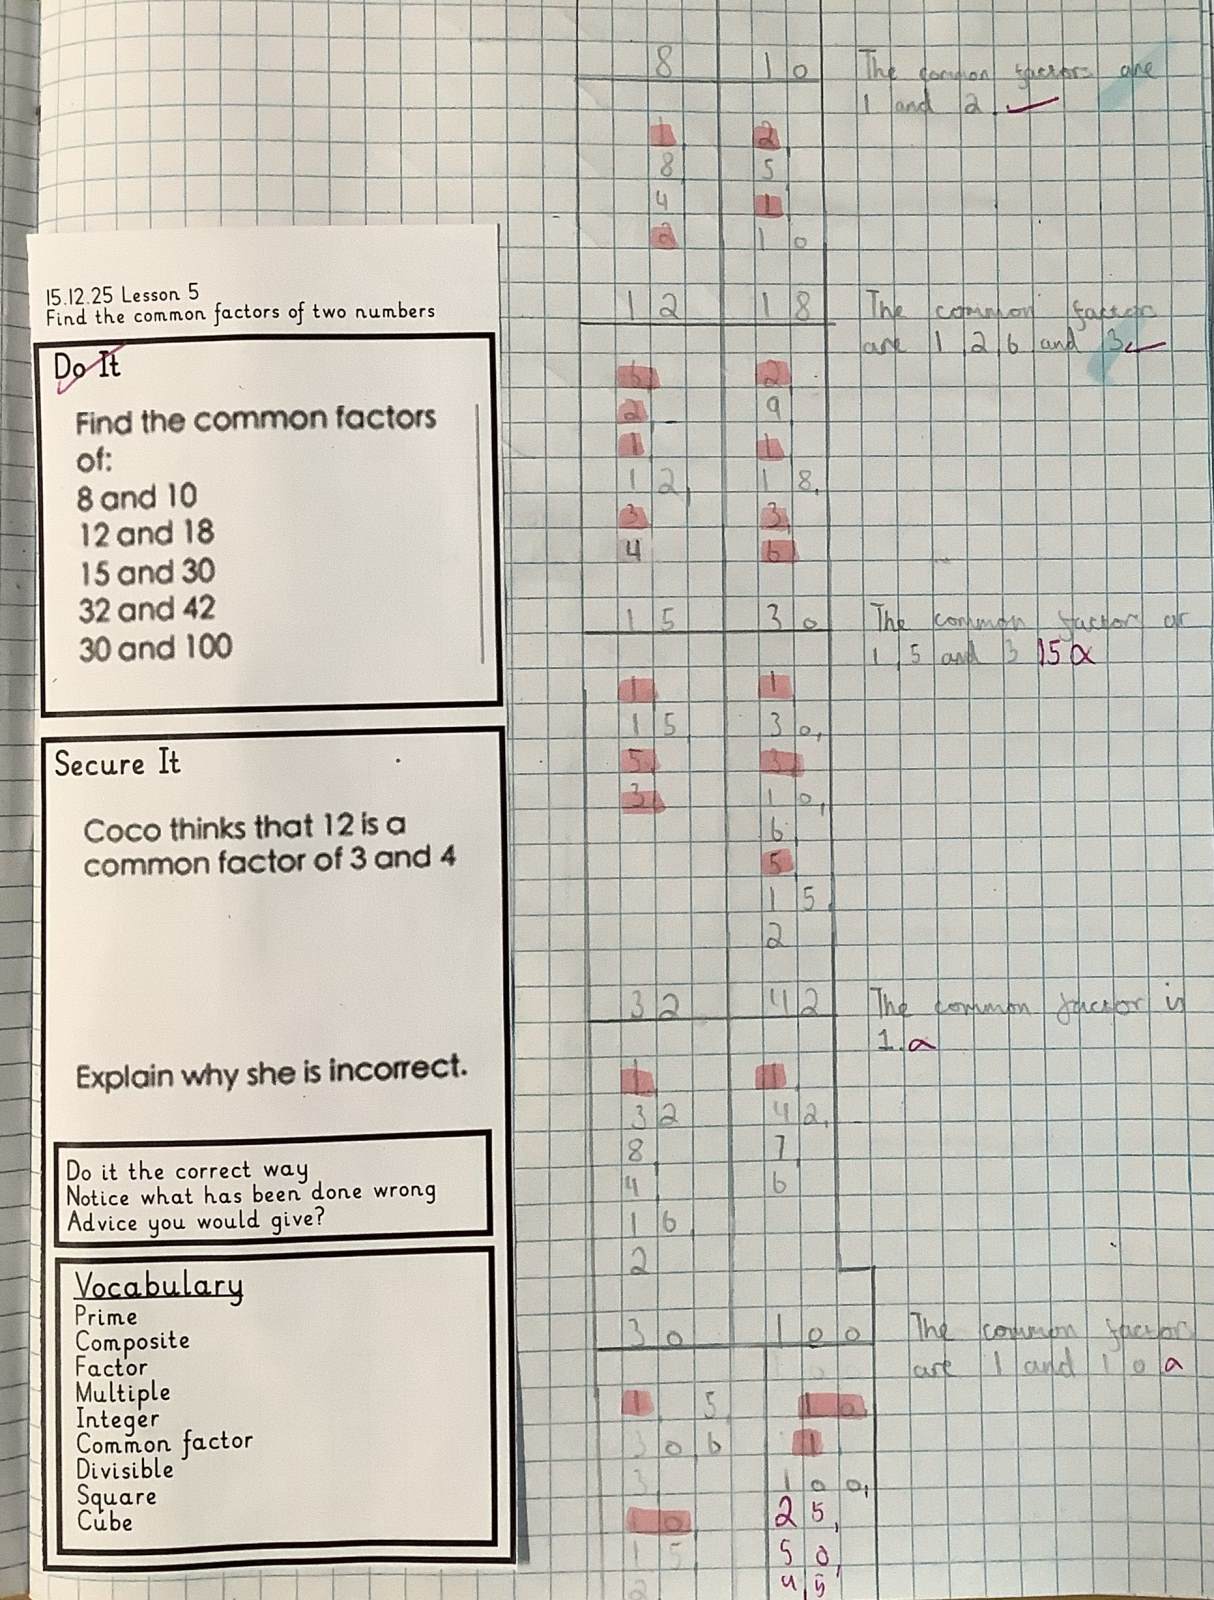 15.12.25 Lesson 5
Find the common factors of two numbers
Do It
Find the common factors
of:
8 and 10
12 and 18
15 and 30
32 and 42
30 and 100
Secure It
Coco thinks that 12 is a
common factor of 3 and 4
Explain why she is incorrect.
Do it the correct way
Notice what has been done wrong
Advice you would give?
Vocabulary
Prime
Composite
Factor
Multiple
Integer
Common factor
Divisible
Square
Cube
8 10
The common factors are
1 and 2.
1, 2,
8, 5
4 1,
2 10
12 18
The common factors
are 1, 2, 6 and 3
6, 2,
2, 9
1, 1,
12, 18,
3 3,
4 6
15 30
The common factors ar
1, 5 and 3 15
1, 1,
15, 30,
5, 3,
3, 10,
6,
5
15,
2
32 42
The common factor is
1.
1, 1,
32 42,
8, 7,
4, 6
16,
2
30 100
The common factors
are 1 and 10
1, 5, 10,
30, 6 1,
3, 100,
10, 25,
15, 50,
2 4, 5